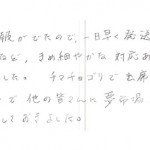 服がでたので、一日早く発送
など、きめ細やかな対応あ
した。チマチョゴリで出席
で他の皆さんに夢市場
しておきました。